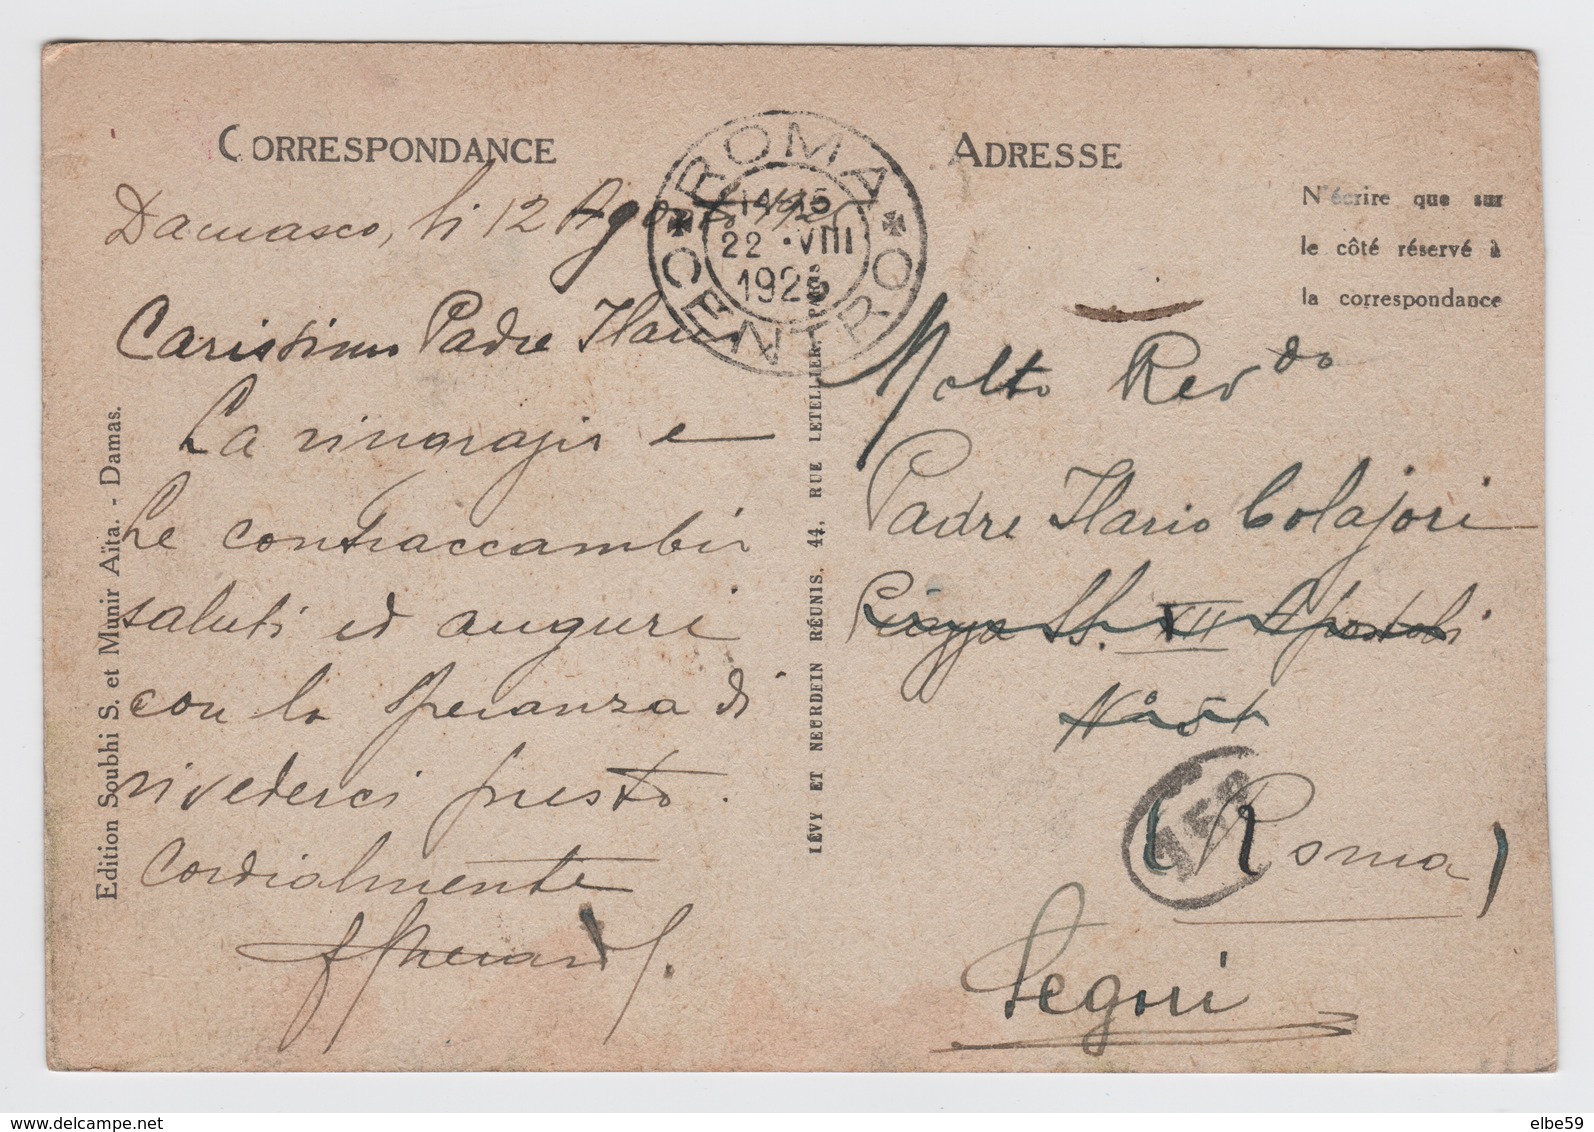 CORRESPONDANCE
Damasco, li 12 Agosto
Carissimo Padre Ilario
La ringrazio e
Le contraccambio
saluti ed auguri
con la speranza di
rivederci presto.
Cordialmente
Edition Soubhi S. et Munir Aïta. - Damas.
ROMA CENTRO
22 ·VIII
LÉVY ET NEURDEIN RÉUNIS. 44, RUE LETELLIER, PARIS
ADRESSE
N'écrire que sur
le côté réservé à
la correspondance
Molto Rev do
Padre Ilario Colajori
Piazza SS. XII Apostoli
(Roma)
Segni
delcampe.net
elbe59